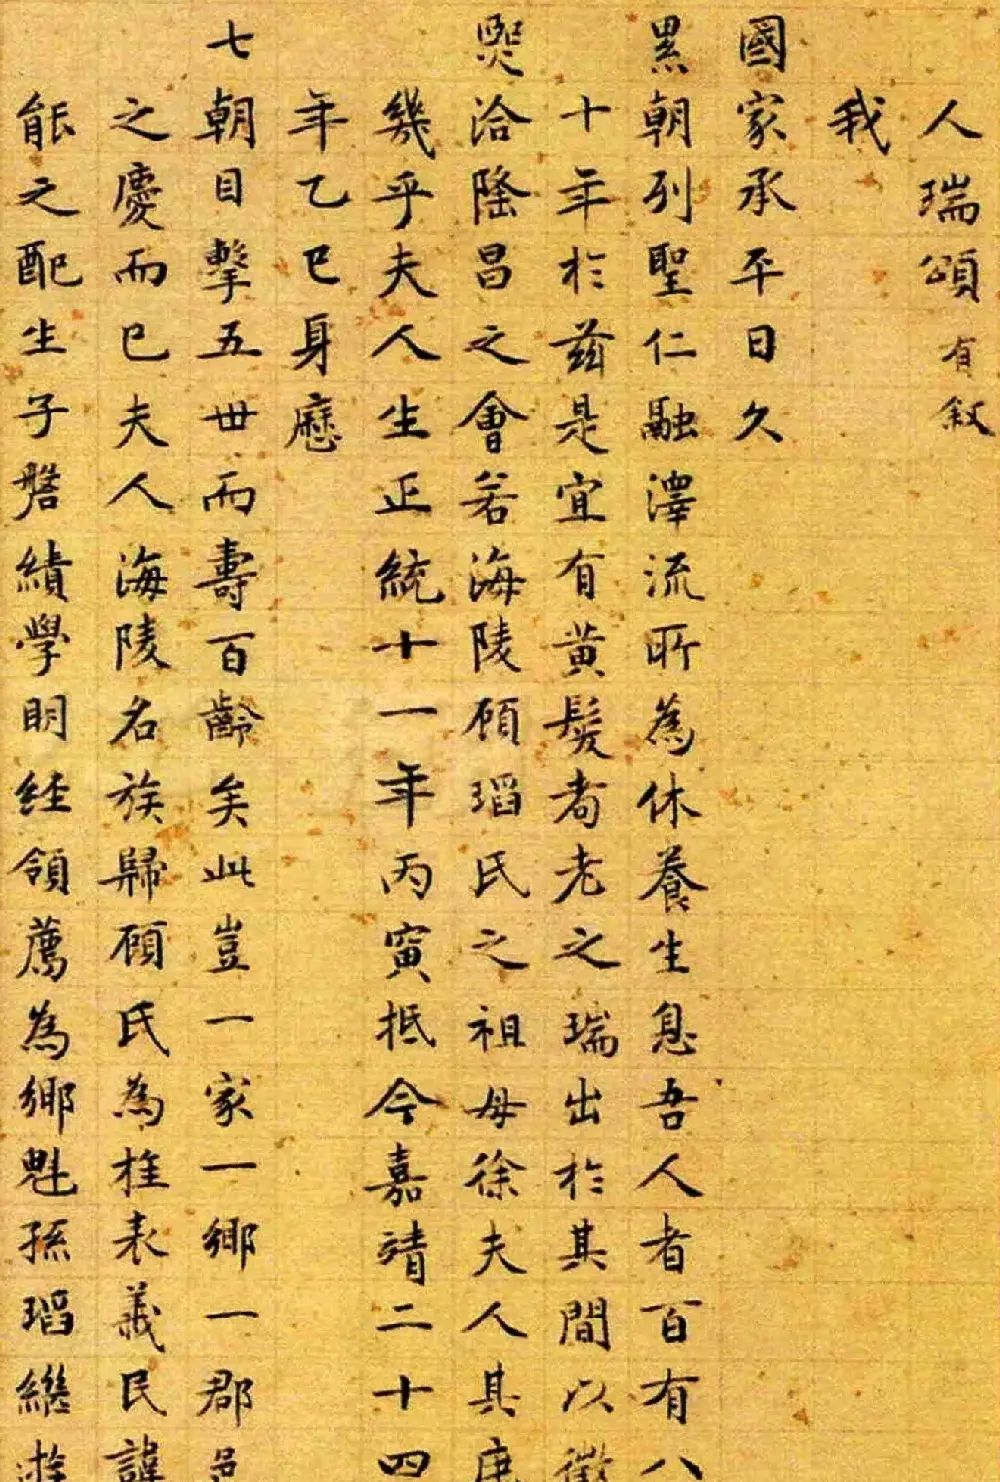 人瑞頌有敘
我
國家承平日久
累朝列聖仁融澤流所為休養生息吾人者百有八
十年於茲是宜有黃髮耇老之瑞出於其間以徵
熙洽隆昌之會若海陵顧瑫氏之祖母徐夫人其庶
幾乎夫人生正統十一年丙寅抵今嘉靖二十四
年乙巳身歷
七朝目擊五世而壽百齡矣此豈一家一鄉一郡邑
之慶而已夫人海陵名族歸顧氏為桂表義民諱
能之配生子磐績學明經領薦為鄉魁孫瑫繼遊